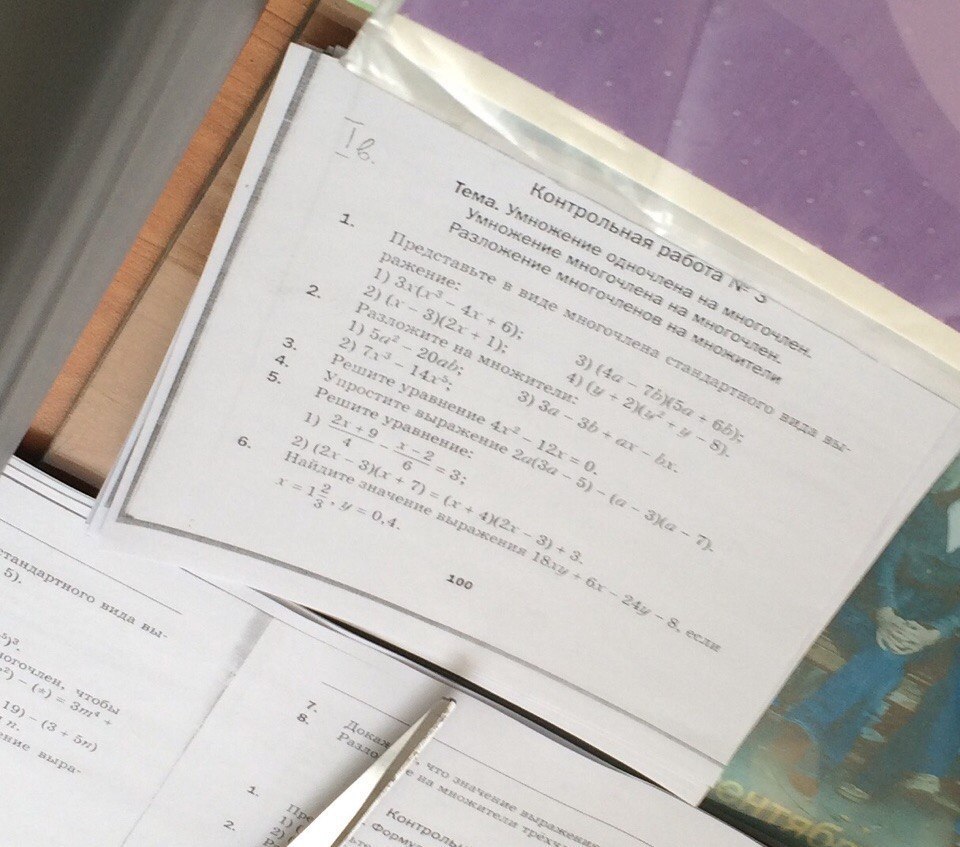 I в.
Контрольная работа № 3
Тема. Умножение одночлена на многочлен.
Умножение многочлена на многочлен.
Разложение многочленов на множители
1. Представьте в виде многочлена стандартного вида вы-
ражение:
1) 3x(x³ − 4x + 6); 3) (4a − 7b)(5a + 6b);
2) (x − 3)(2x + 1); 4) (y + 2)(y² + y − 8).
2. Разложите на множители:
1) 5a² − 20ab; 3) 3a − 3b + ax − bx.
2) 7x³ − 14x⁵;
3. Решите уравнение 4x² − 12x = 0.
4. Упростите выражение 2a(3a − 5) − (a − 3)(a − 7).
5. Решите уравнение:
1) (2x + 9)/4 − (x − 2)/6 = 3;
2) (2x − 3)(x + 7) = (x + 4)(2x − 3) + 3.
6. Найдите значение выражения 18xy + 6x − 24y − 8, если
x = 1 2/3, y = 0,4.
100
стандартного вида вы-
5).
⁵)³.
ногочлен, чтобы
²) − (*) = 3m⁴ +
19) − (3 + 5n)
n.
ение выра-
7. Докаж
8. Разло
1. Пре
1) (
2)
2. Р
, что значение выражения
е на множители трёхч
Контроль
Формул
онтяб